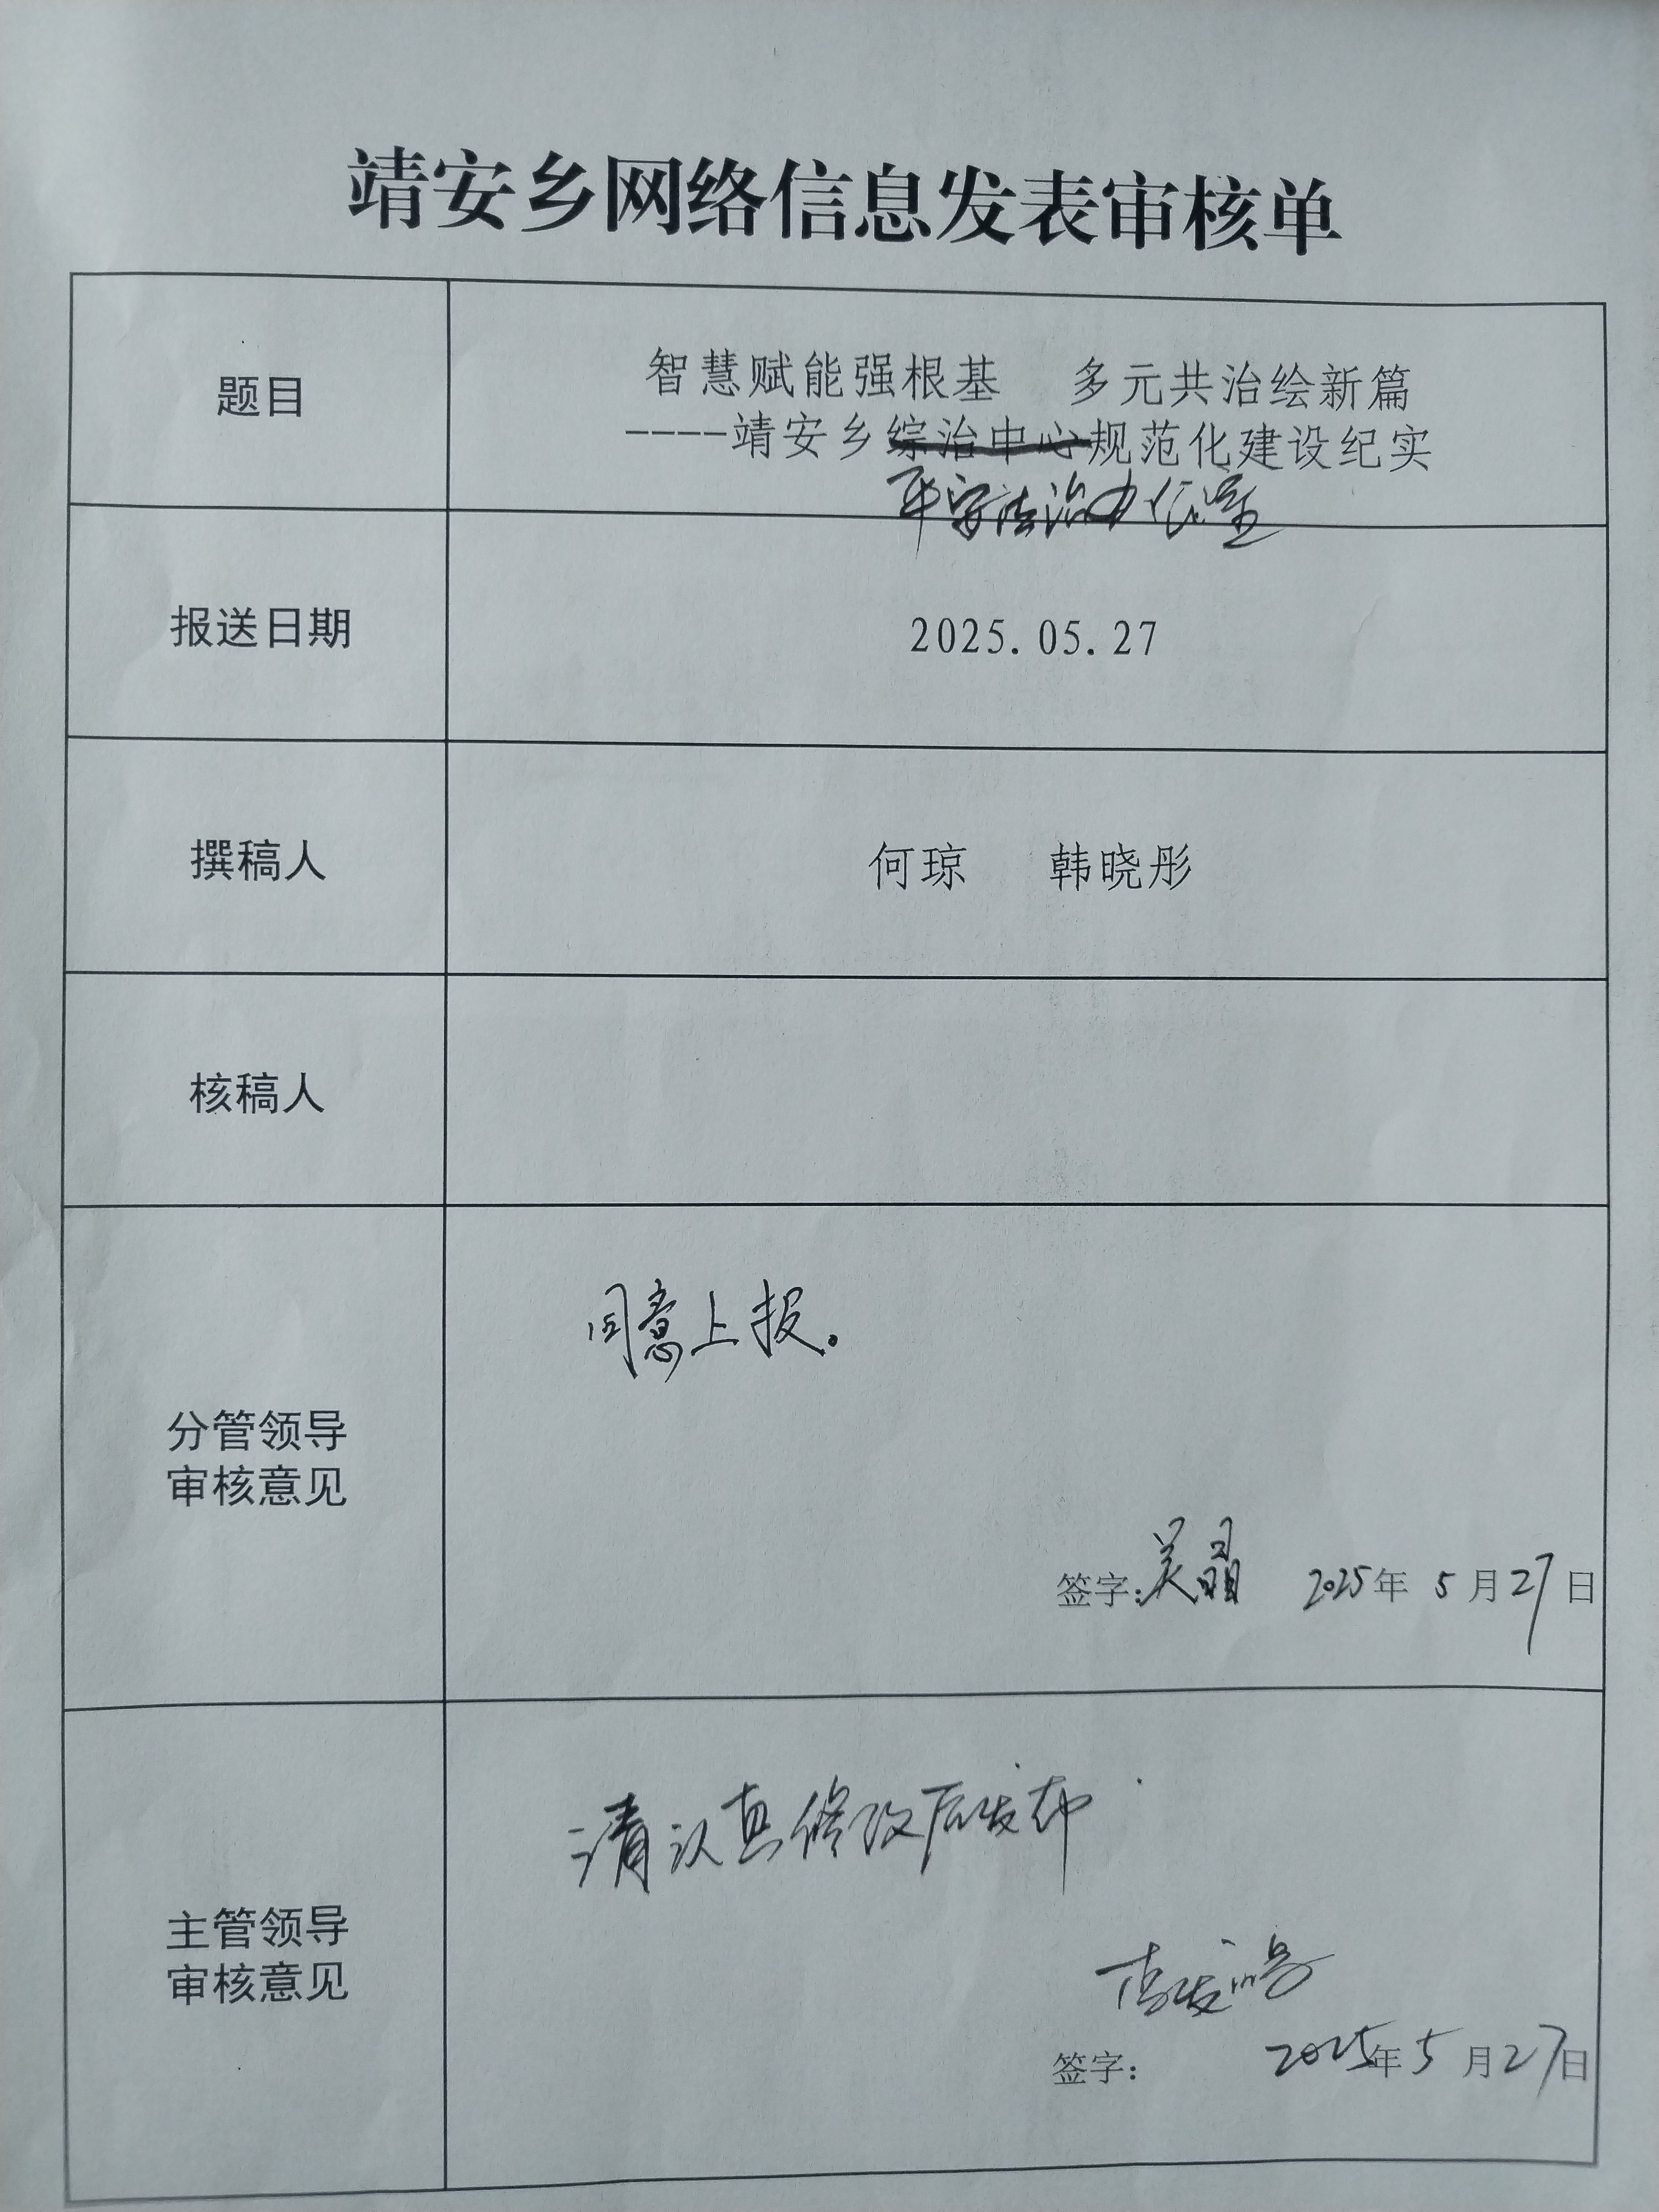 靖安乡网络信息发表审核单
题目
智慧赋能强根基 多元共治绘新篇
----靖安乡综治中心规范化建设纪实
平安法治办公室
报送日期
2025.05.27
撰稿人
何琼 韩晓彤
核稿人
分管领导
审核意见
同意上报。
签字:吴晶 2025年 5 月 27 日
主管领导
审核意见
请认真修改后发布
签字: 2025年 5 月 27 日